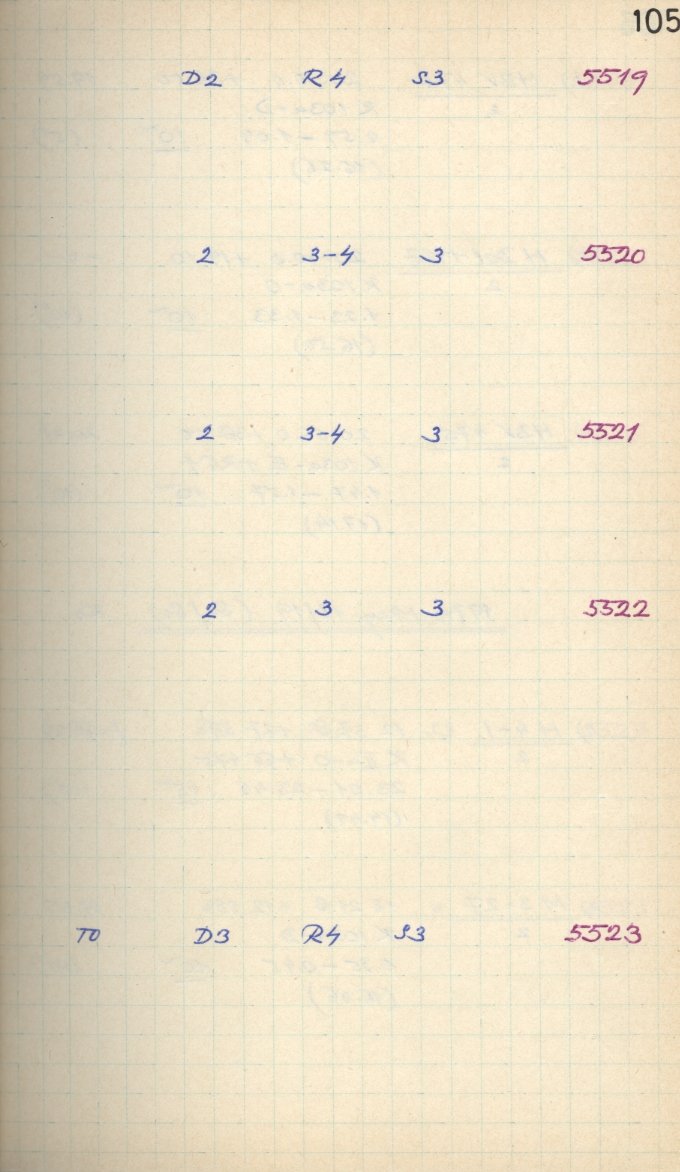 105
D2 R4 S3 5519
2 3-4 3 5520
2 3-4 3 5521
2 3 3 5522
TO D3 R4 S3 5523